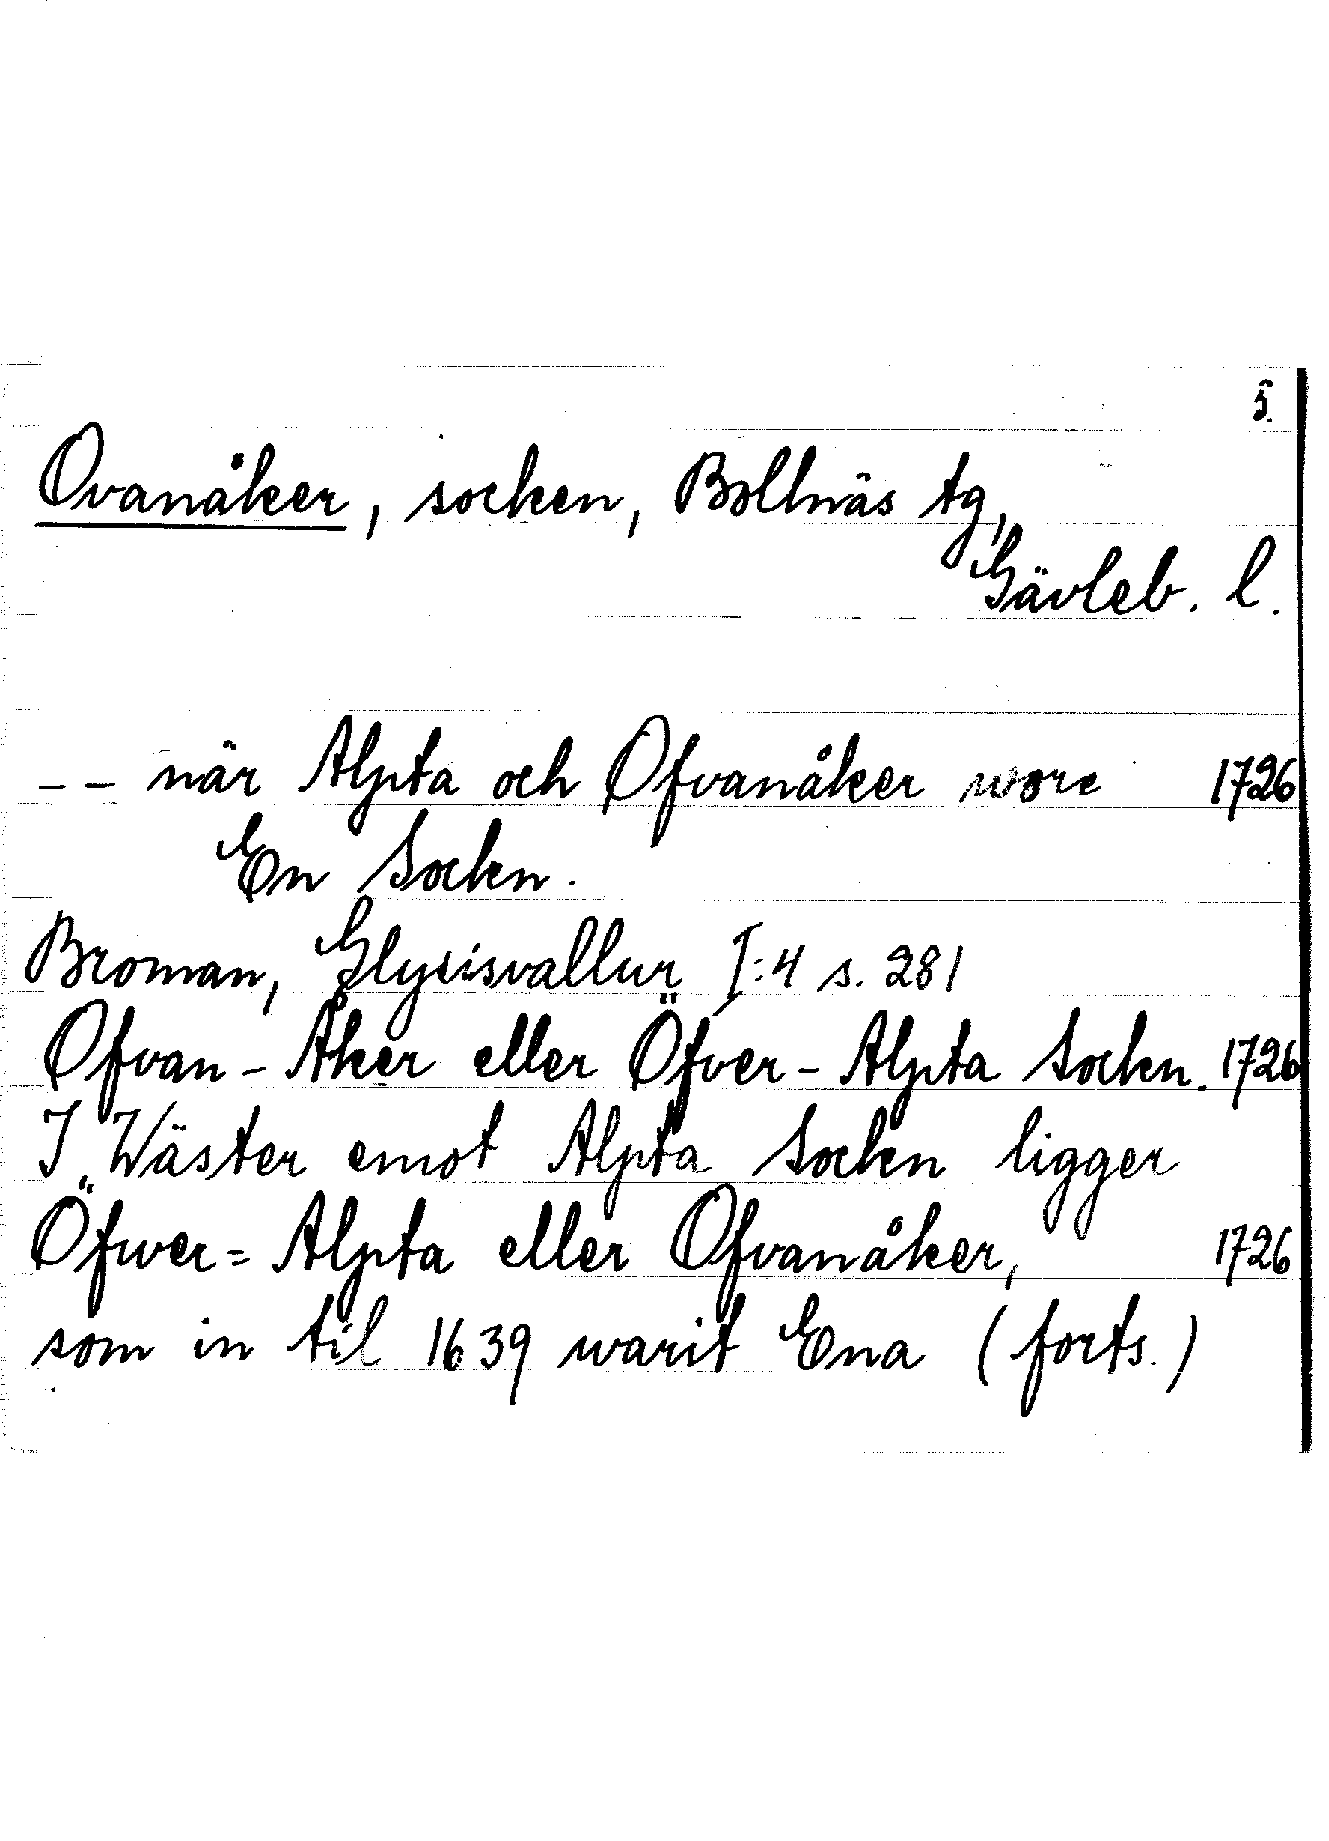 5.
Ovanåker, socken, Bollnäs tg,
Gävleb. l.
-- när Alpta och Ofvanåker wore 1726
En Sockn.
Broman, Glysisvallur I:4 s. 281
Ofvan-Åker eller Öfver-Alpta Sockn. 1726
I Wäster emot Alpta Sockn ligger
Öfwer=Alpta eller Ofvanåker, 1726
som in til 1639 warit Ena (forts.)